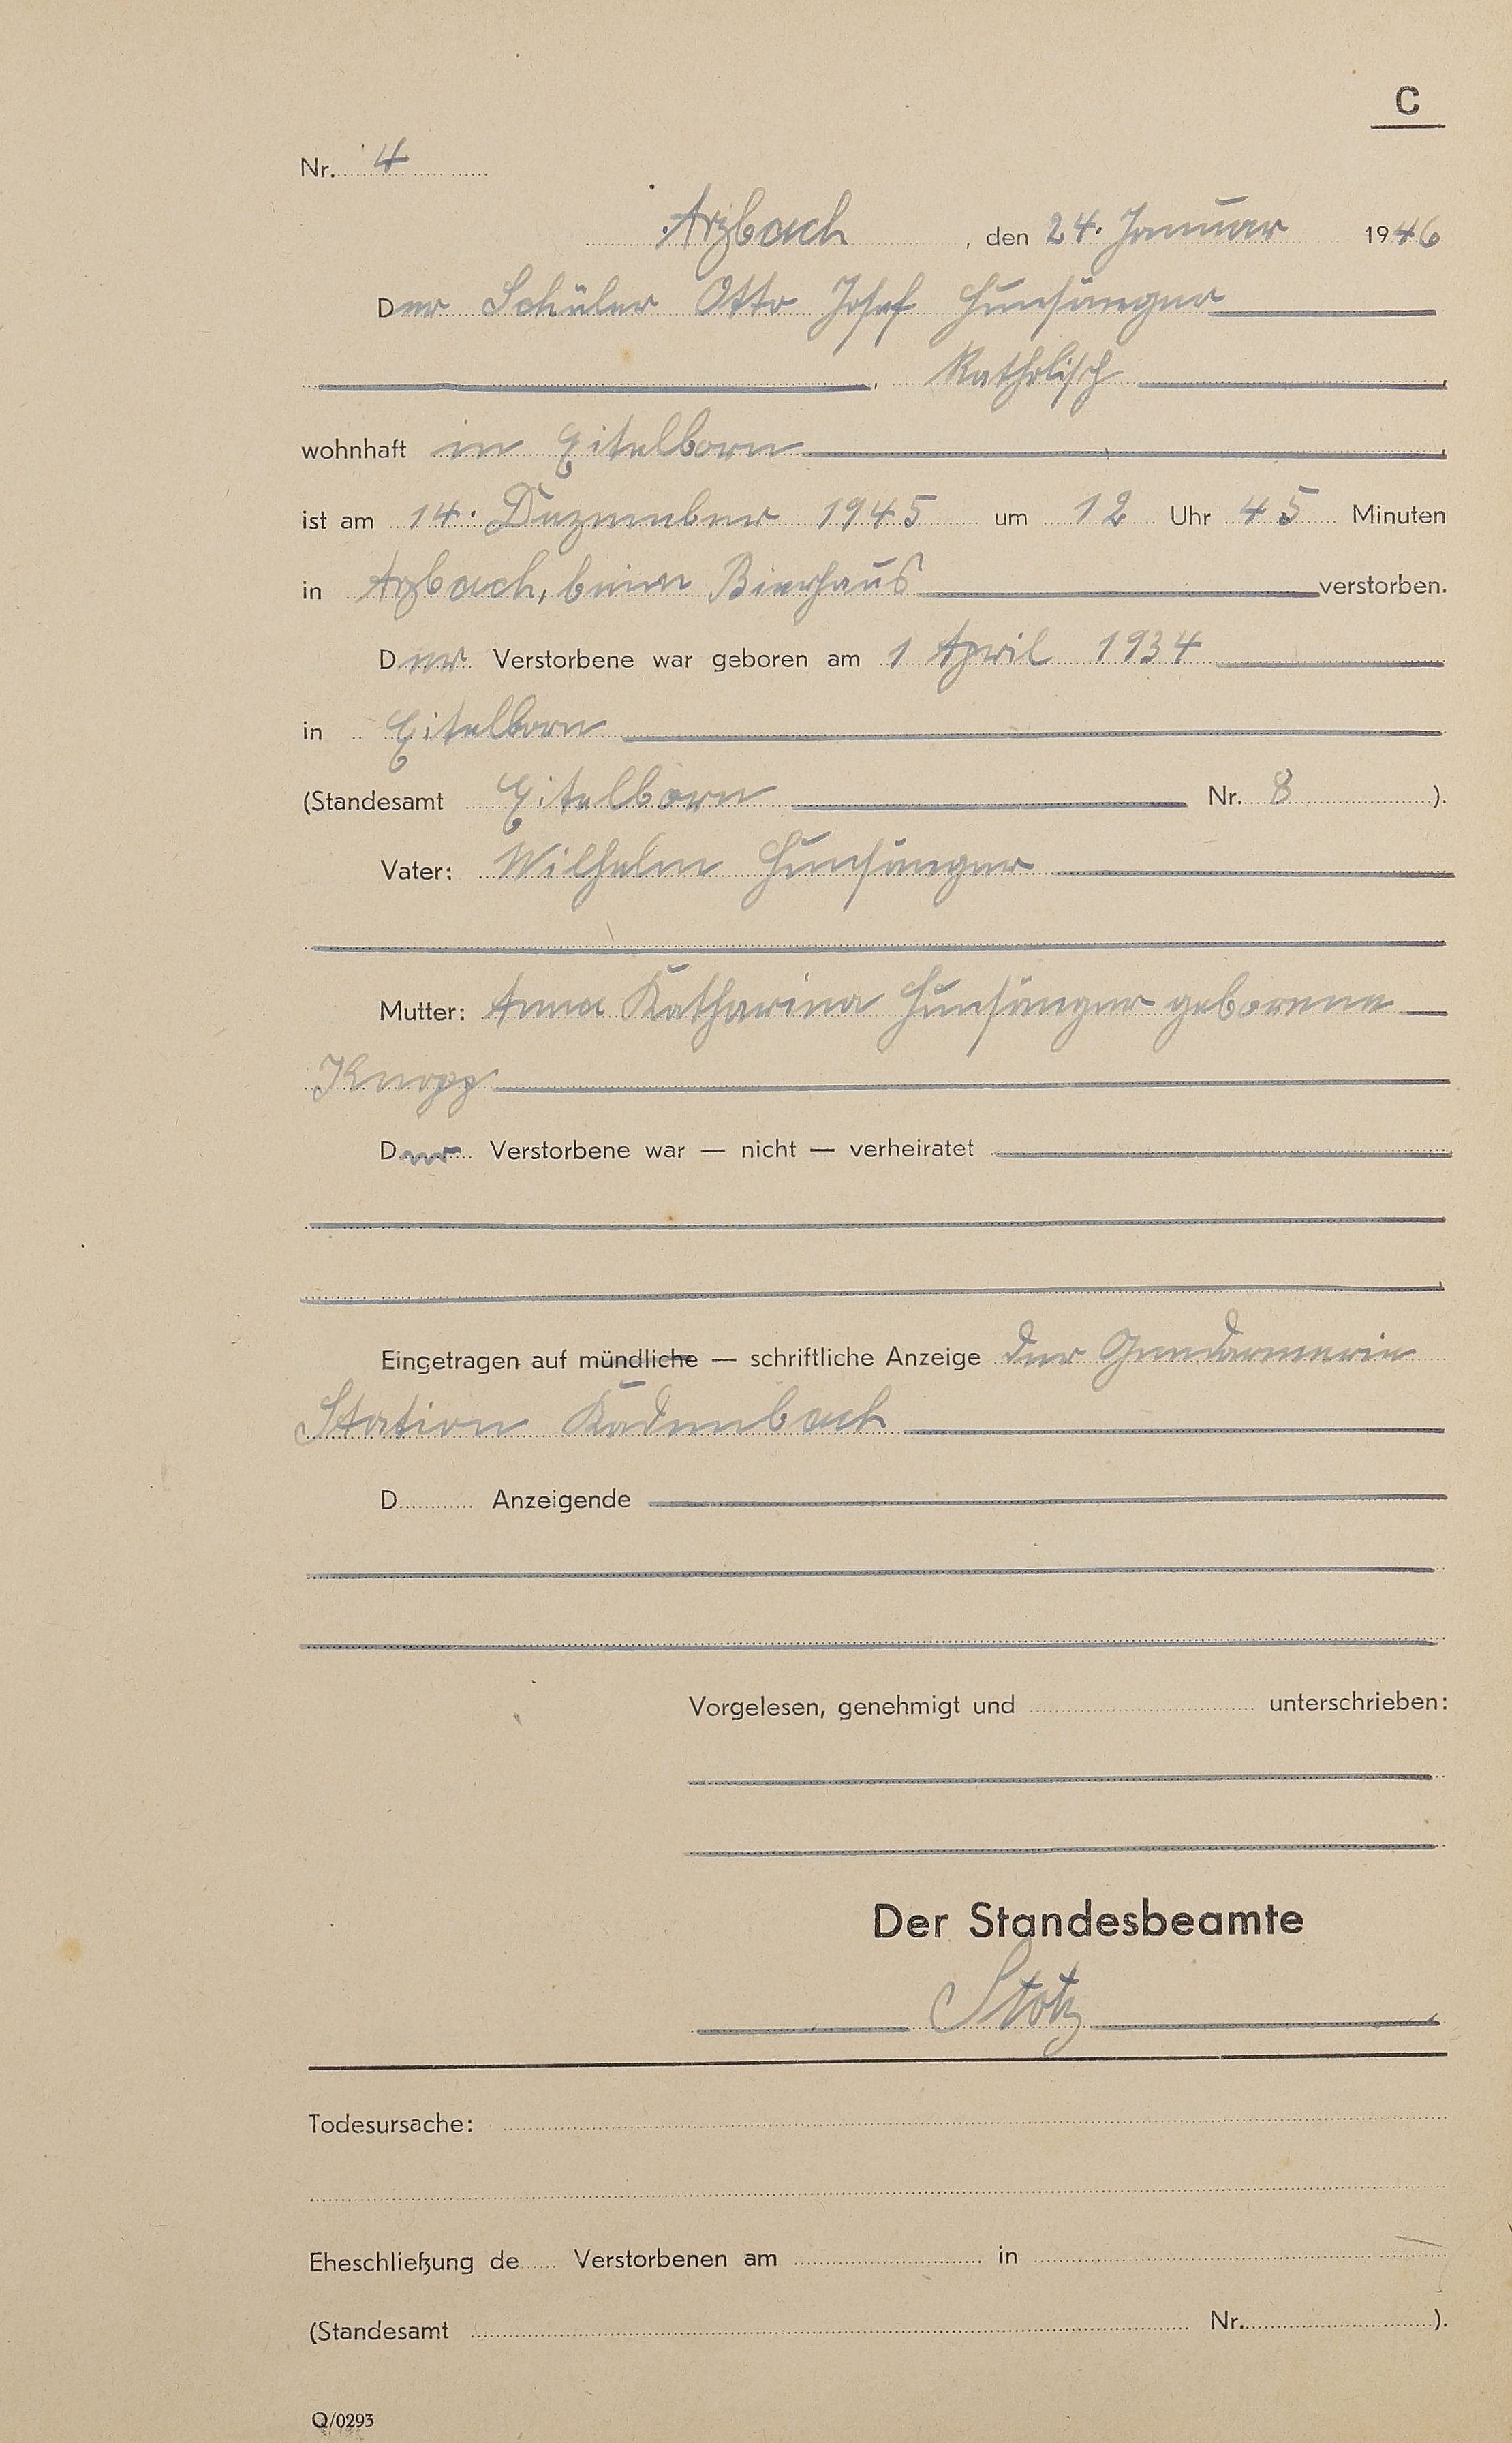 C
Nr. 4
Arzbach, den 24. Januar 1946
Der Schüler Otto Josef Hunsänger
, Katholisch
wohnhaft in Eitelborn
ist am 14. Dezember 1945 um 12 Uhr 45 Minuten
in Arzbach, beim Bierhaus verstorben.
Der Verstorbene war geboren am 1 April 1934
in Eitelborn
(Standesamt Eitelborn Nr. 8 ).
Vater: Wilhelm Hunsänger
Mutter: Anna Katharina Hunsänger geborene
Knopp
Der Verstorbene war — nicht — verheiratet
Eingetragen auf mündliche — schriftliche Anzeige der Gendarmerie
Station Kadenbach
D Anzeigende
Vorgelesen, genehmigt und unterschrieben:
Der Standesbeamte
Stotz
Todesursache:
Eheschließung de Verstorbenen am in
(Standesamt Nr. ).
Q/0293